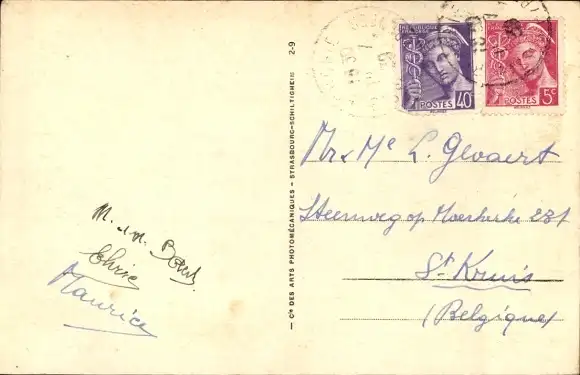 RÉPUBLIQUE FRANÇAISE
POSTES 40c
POSTES 5c
Mr & Me L. Gevaert
Steenweg op Moerkerke 231
St Kruis
(Belgique)
M. Bont
Maurice
— Cie DES ARTS PHOTOMÉCANIQUES — STRASBOURG-SCHILTIGHEIM 2-9